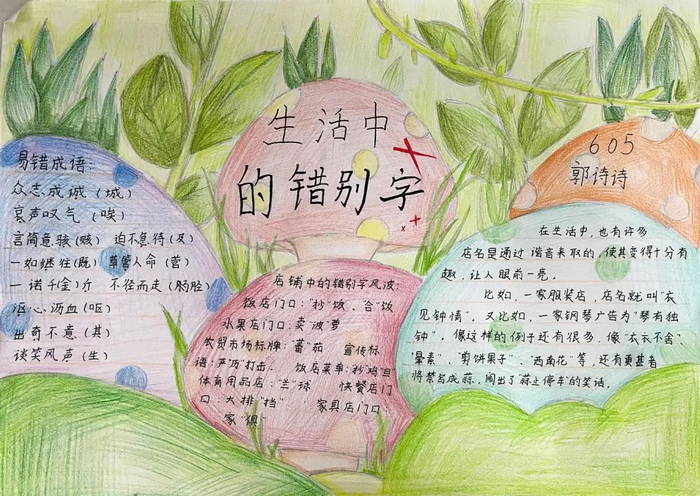 生活中
的错别字
605
郭诗诗
易错成语:
众志成诚(城)
哀声叹气(唉)
言简意骇(赅) 迫不急待(及)
一如继往(既) 草管人命(菅)
一诺千金)斤 不径而走(胫)
沤心沥血(呕)
出奇不意(其)
谈笑风声(生)
店铺中的错别字风波:
饭店门口:"抄"饭、合"饭
水果店门口:卖"波萝
农贸市场标牌:"蕃"茄 宣传标
语:"产"历"打击。 饭店菜单:"抄"鸡旦
体育用品店:"兰"球 快餐店门
口:大排"挡" 家具店门口:
家"俱"
在生活中,也有许多
店名是通过谐音来取的,使其变得十分有
趣,让人眼前一亮。
比如,一家服装店,店名就叫"衣
见钟情"。又比如,一家钢琴广告为"琴有独
钟"。像这样的例子还有很多,像"衣衣不舍"、
"晕素"、"剪饼果子"、"西南花"等,还有更甚者
将禁写成蒜,闹出了"蒜止停车"的笑话。